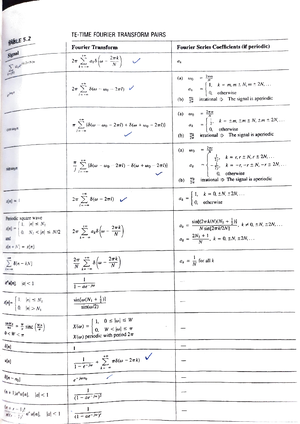 TE-TIME FOURIER TRANSFORM PAIRS
TABLE 5.2
Signal
Fourier Transform
Fourier Series Coefficients (if periodic)
2π Σ a_k δ(ω − 2πk/N)
a_k
2π Σ δ(ω − ω₀ − 2πl)
(a) ω₀ = 2πm/N
a_k = { 1, k = m, m ± N, m ± 2N, . . .
0, otherwise
(b) irrational ⇒ The signal is aperiodic
π Σ {δ(ω − ω₀ − 2πl) + δ(ω + ω₀ − 2πl)}
(a) ω₀ = 2πm/N
k = ±m, ±m ± N, ±m ± 2N, . . .
0, otherwise
(b) irrational ⇒ The signal is aperiodic
π/j Σ {δ(ω − ω₀ − 2πl) − δ(ω + ω₀ − 2πl)}
(a)
k = r, r ± N, r ± 2N, . . .
k = −r, −r ± N, −r ± 2N, . . .
0, otherwise
(b) irrational ⇒ The signal is aperiodic
x[n] = 1
2π Σ δ(ω − 2πl)
a_k = { 1, k = 0, ±N, ±2N, . . .
0, otherwise
Periodic square wave
x[n] = { 1, |n| ≤ N₁
0, N₁ < |n| ≤ N/2
and
x[n + N] = x[n]
2π Σ a_k δ(ω − 2πk/N)
a_k = sin[(2πk/N)(N₁ + ½)] / N sin[2πk/2N], k ≠ 0, ±N, ±2N, . . .
a_k = (2N₁ + 1)/N, k = 0, ±N, ±2N, . . .
Σ δ[n − kN]
2π/N Σ δ(ω − 2πk/N)
a_k = 1/N for all k
aⁿu[n], |a| < 1
1/(1 − ae^−jω)
—
x[n] = { 1, |n| ≤ N₁
0, |n| > N₁
sin[ω(N₁ + ½)] / sin(ω/2)
—
sin Wn/πn = W/π sinc(Wn/π)
0 < W < π
X(ω) = { 1, 0 ≤ |ω| ≤ W
0, W < |ω| ≤ π
X(ω) periodic with period 2π
—
δ[n]
1
—
u[n]
1/(1 − e^−jω) + Σ πδ(ω − 2πk)
—
δ[n − n₀]
e^−jωn₀
—
(n + 1)aⁿu[n], |a| < 1
1/(1 − ae^−jω)²
—
aⁿu[n], |a| < 1
1/(1 − ae^−jω)^r
—